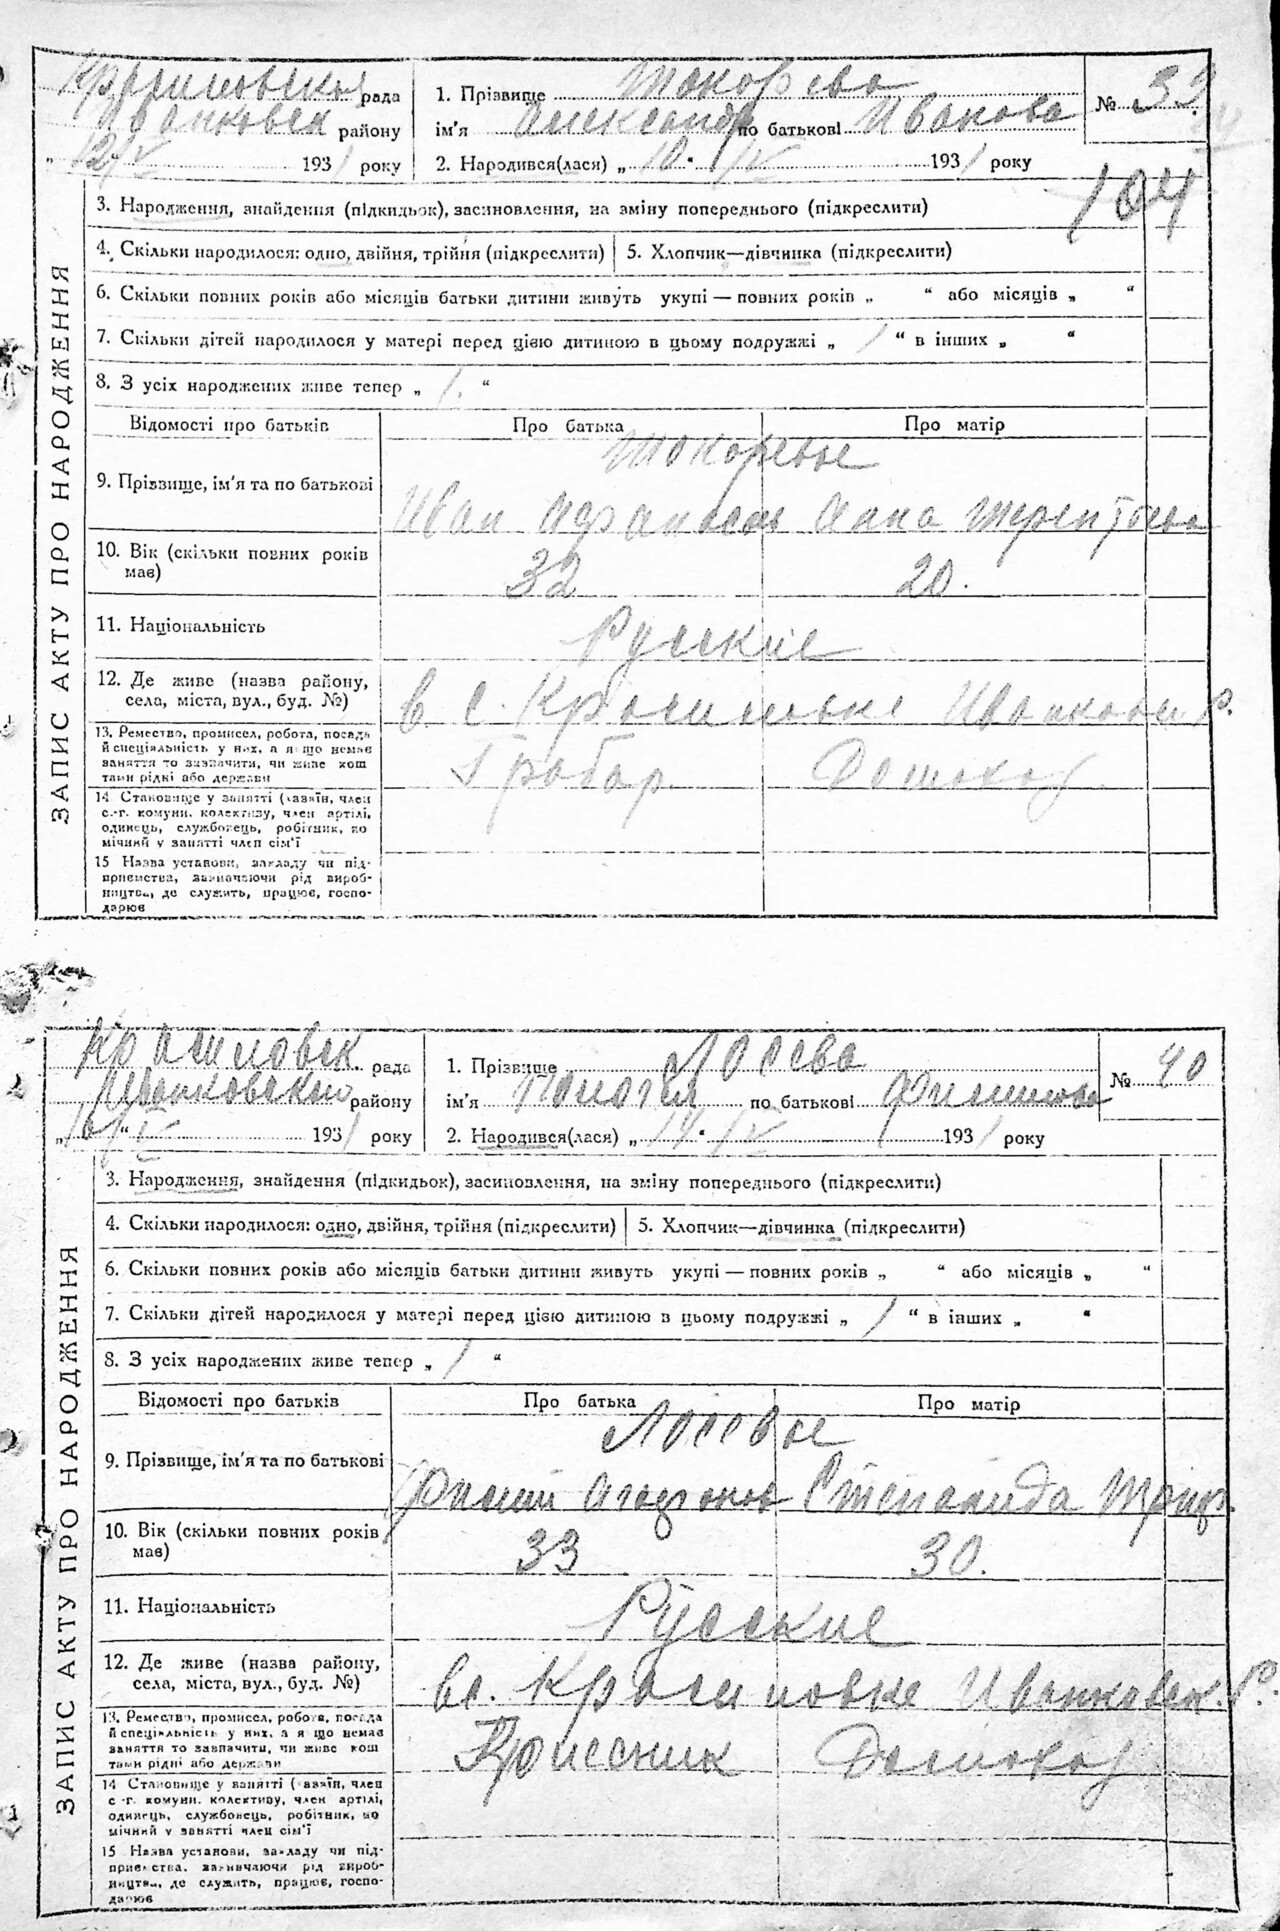 Красиловская рада
Иванковск району
12/IV 1931 року
1. Прізвище Токорева
ім'я Александр по батькові Иванова
2. Народився(лася) „ 10 “ IV 1931 року
№ 39
104
3. Народження, знайдення (підкидьок), засиновлення, на зміну попереднього (підкреслити)
4. Скільки народилося: одно, двійня, трійня (підкреслити) 5. Хлопчик—дівчинка (підкреслити)
6. Скільки повних років або місяців батьки дитини живуть укупі — повних років „ “ або місяців „ “
7. Скільки дітей народилося у матері перед цією дитиною в цьому подружжі „ 1 “ в інших „ “
8. З усіх народжених живе тепер „ 1. “
ЗАПИС АКТУ ПРО НАРОДЖЕННЯ
Відомості про батьків Про батька Про матір
Токоревы
9. Прізвище, ім'я та по батькові
Иван Афанасов Анна Терентьева
10. Вік (скільки повних років має) 32 20.
11. Національність Русские
12. Де живе (назва району, села, міста, вул., буд. №) в с. Красиловке Иванковск р.
13. Ремество, промисел, робота, посада
й спеціяльність у них, а якщо немає
заняття то зазначити, чи живе кош
тами рідні або держави
Грабар. Домохоз
14 Становище у занятті (хазяїн, член
с.-г. комуни, колективу, член артілі,
одинець, службовець, робітник, по
мічний у занятті член сім'ї
15 Назва установи, закладу чи під-
приємства, зазначаючи рід вироб-
ництва, де служить, працює, госпо-
дарює
Красиловск рада
Иванковского району
„16/“ IV 1931 року
1. Прізвище Лосева
ім'я Пелагея по батькові Филиппова
2. Народився(лася) „ 14 “ IV 1931 року
№ 40
3. Народження, знайдення (підкидьок), засиновлення, на зміну попереднього (підкреслити)
4. Скільки народилося: одно, двійня, трійня (підкреслити) 5. Хлопчик—дівчинка (підкреслити)
6. Скільки повних років або місяців батьки дитини живуть укупі — повних років „ “ або місяців „ “
7. Скільки дітей народилося у матері перед цією дитиною в цьому подружжі „ 1 “ в інших „ “
8. З усіх народжених живе тепер „ 1 “
ЗАПИС АКТУ ПРО НАРОДЖЕННЯ
Відомості про батьків Про батька Про матір
Лосевы
9. Прізвище, ім'я та по батькові
Агафонов Степанида
10. Вік (скільки повних років має) 33 30.
11. Національність Русские
12. Де живе (назва району, села, міста, вул., буд. №) в с. Красиловке Иванковск. р.
13. Ремество, промисел, робота, посада
й спеціяльність у них, а якщо немає
заняття то зазначити, чи живе кош
тами рідні або держави
Домохоз
14 Становище у занятті (хазяїн, член
с.-г. комуни, колективу, член артілі,
одинець, службовець, робітник, по
мічний у занятті член сім'ї
15 Назва установи, закладу чи під-
приємства, зазначаючи рід вироб-
ництва, де служить, працює, госпо-
дарює